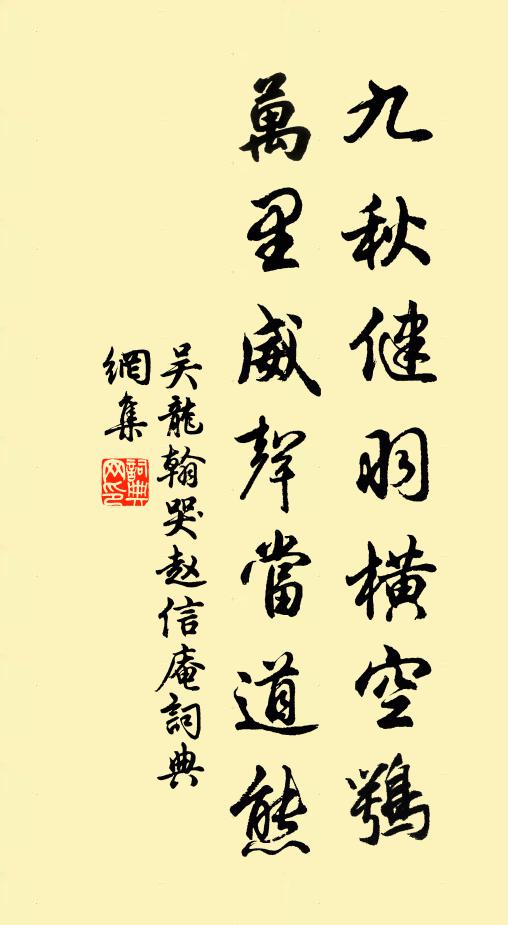 九秋健羽橫空鶚
萬里威聲當道熊
吴龍翰哭赵信庵詞典
網集
詞典網印